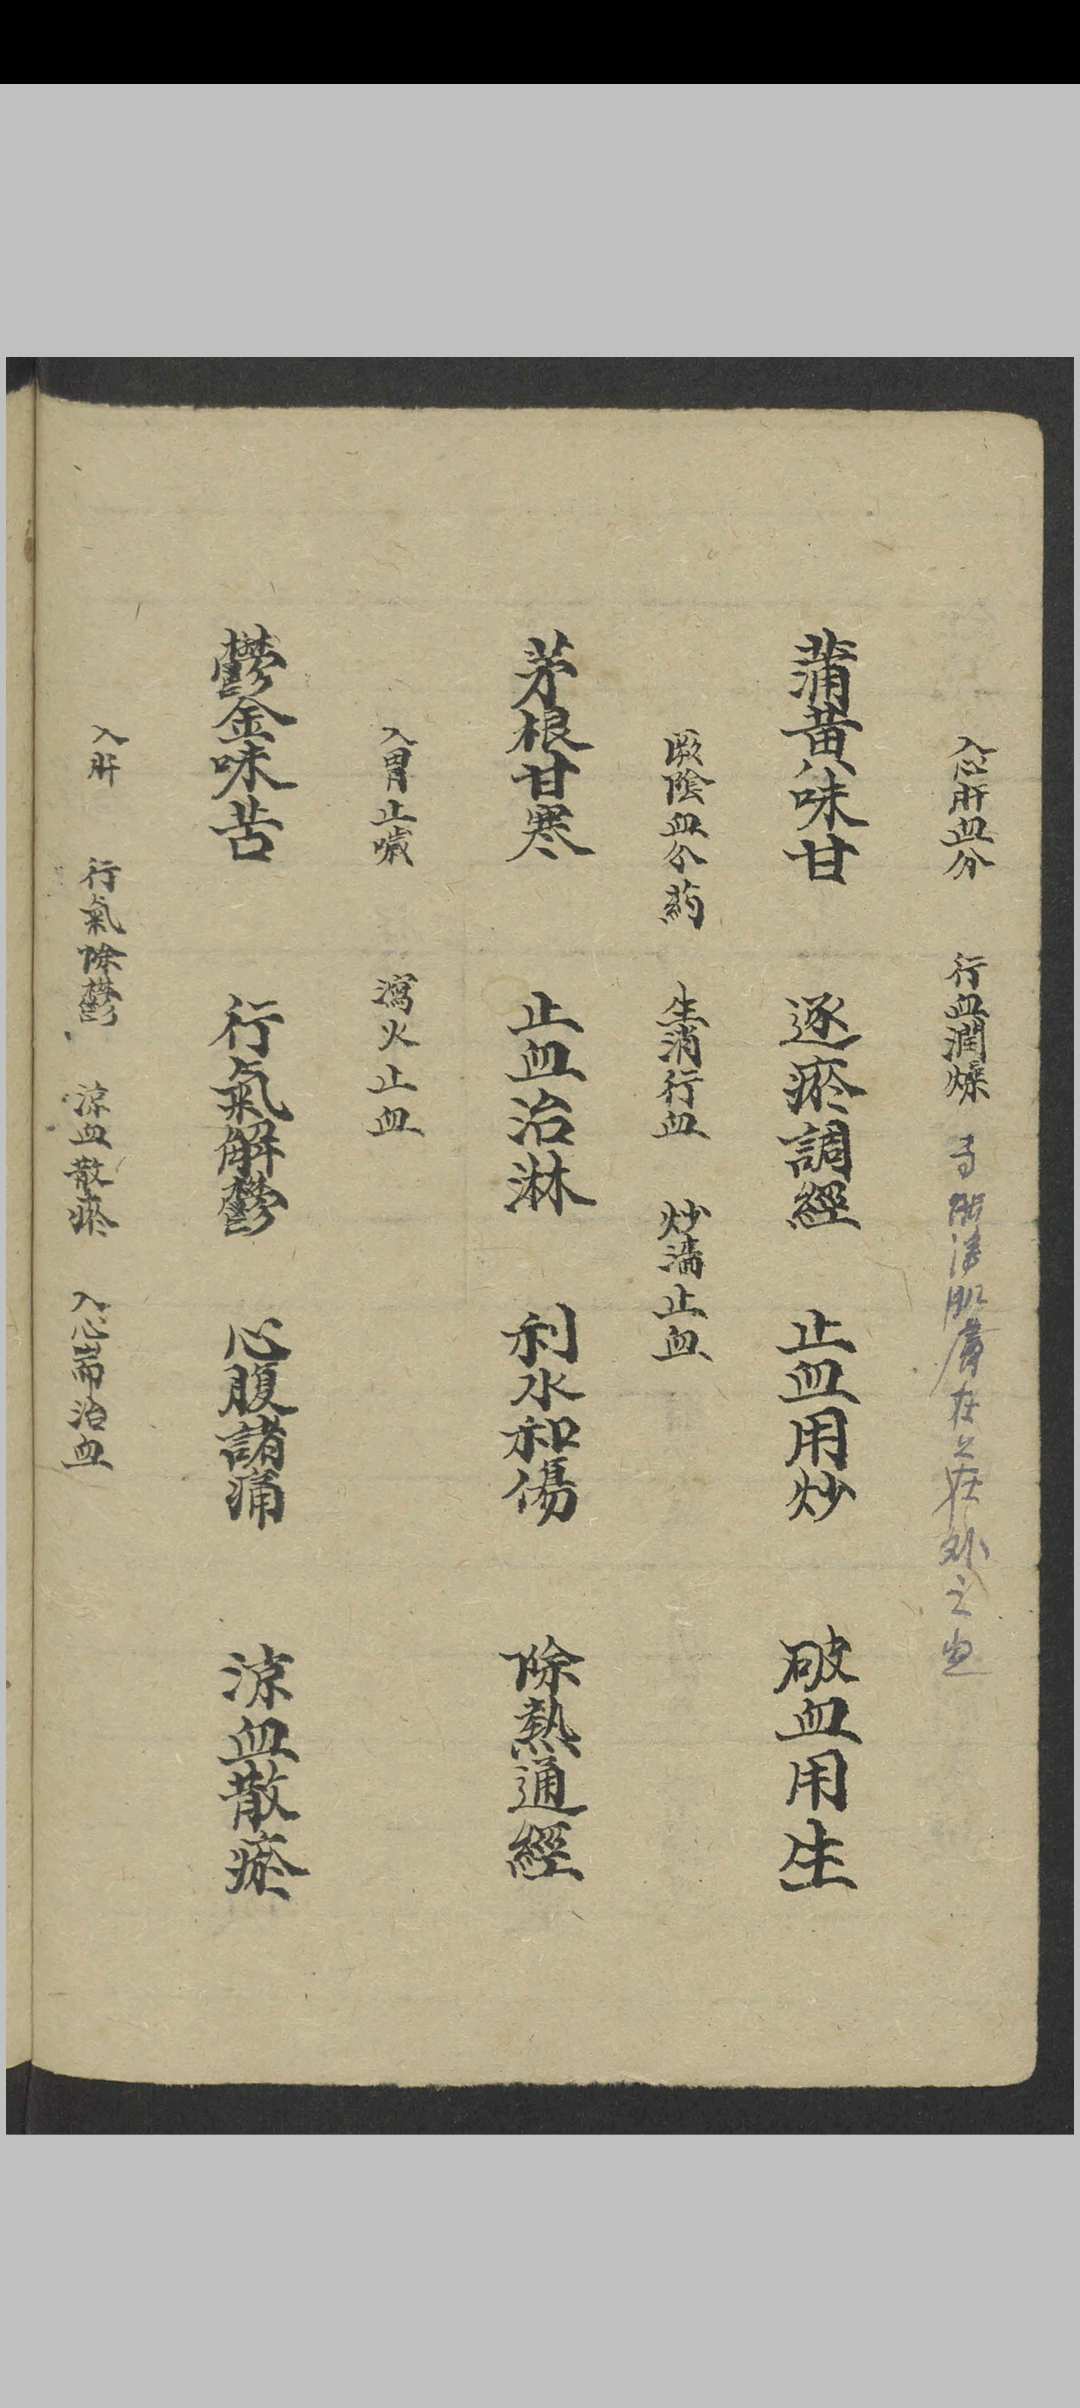 入心肝血分 行血潤燥
蒲黄味甘 逐瘀調經 止血用炒 破血用生
厥陰血分药 生消行血 炒濇止血
茅根甘寒 止血治淋 利水和傷 除熱通經
入胃止嘔 瀉火止血
鬱金味苦 行氣解鬱 心腹諸痛 涼血散瘀
入肝 行氣除鬱 涼血散瘀 入心崩治血